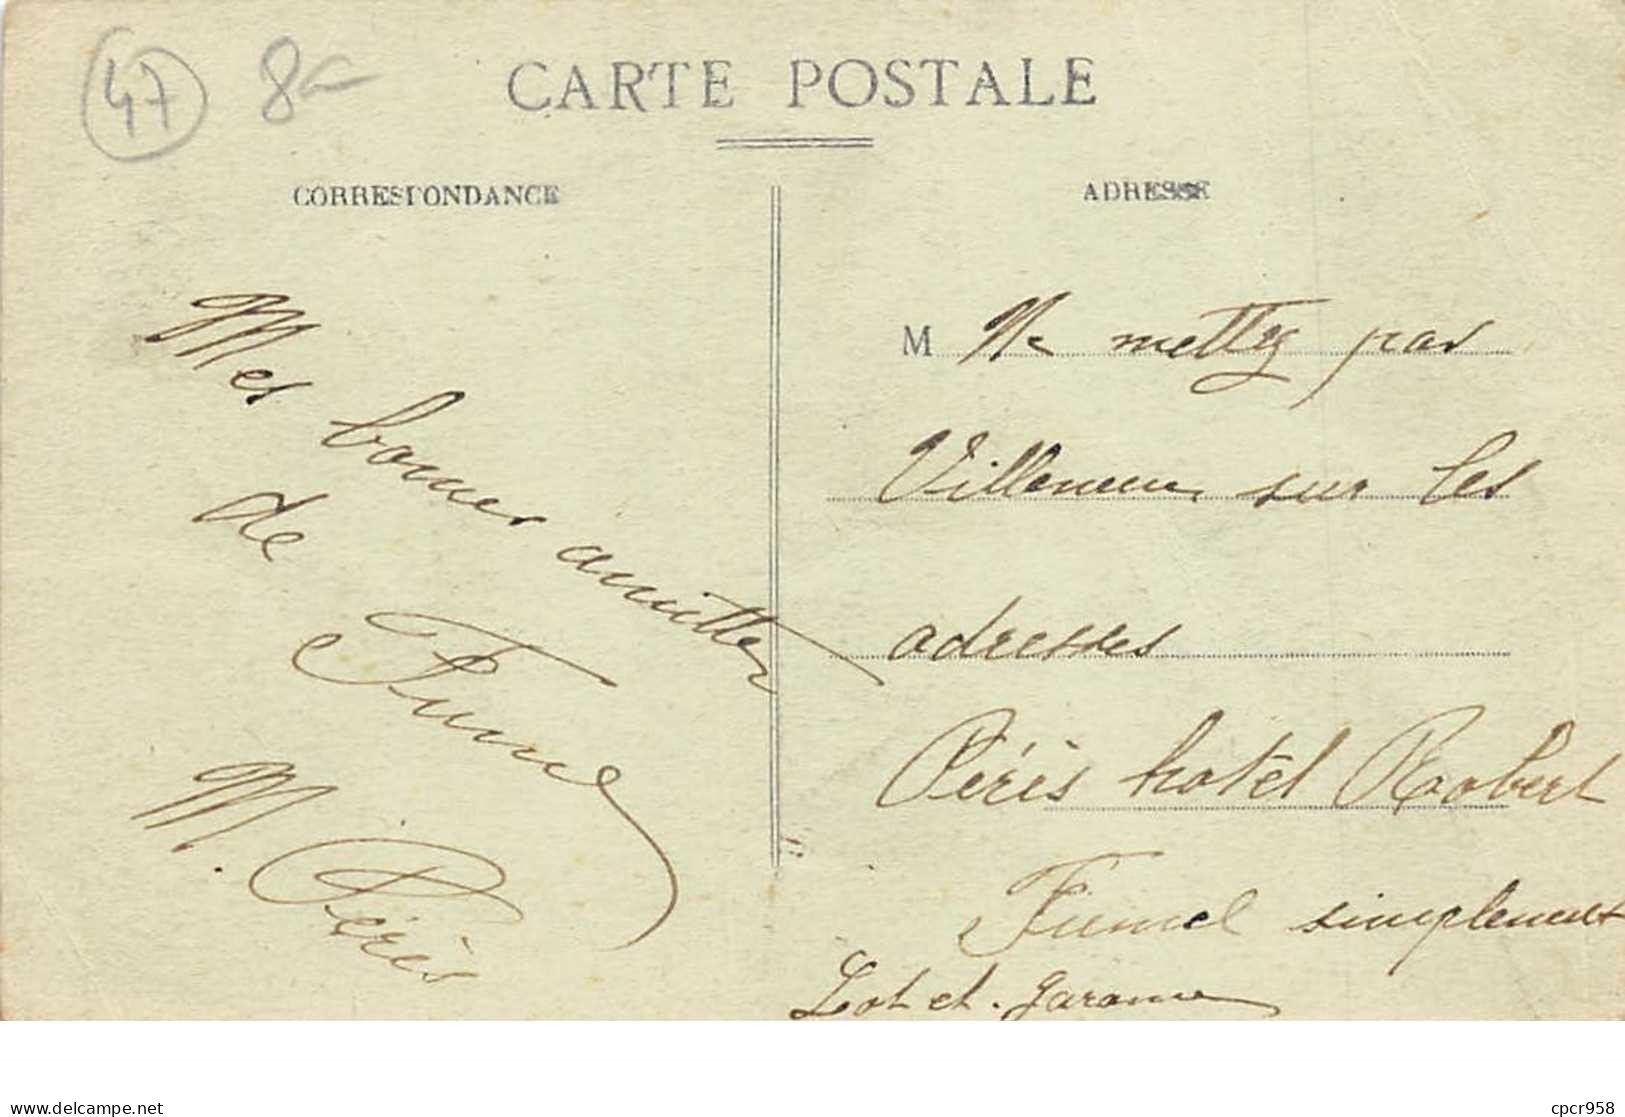 47 8-
CARTE POSTALE
CORRESPONDANCE
ADRESSE
Mes bonnes amitiés
de
Fumel
M. Pérès
M Ne mettez pas
Villeneuve sur les
adresses
Pérès hotel Robert
Fumel simplement
Lot et. garonne
delcampe.net
cpcr958